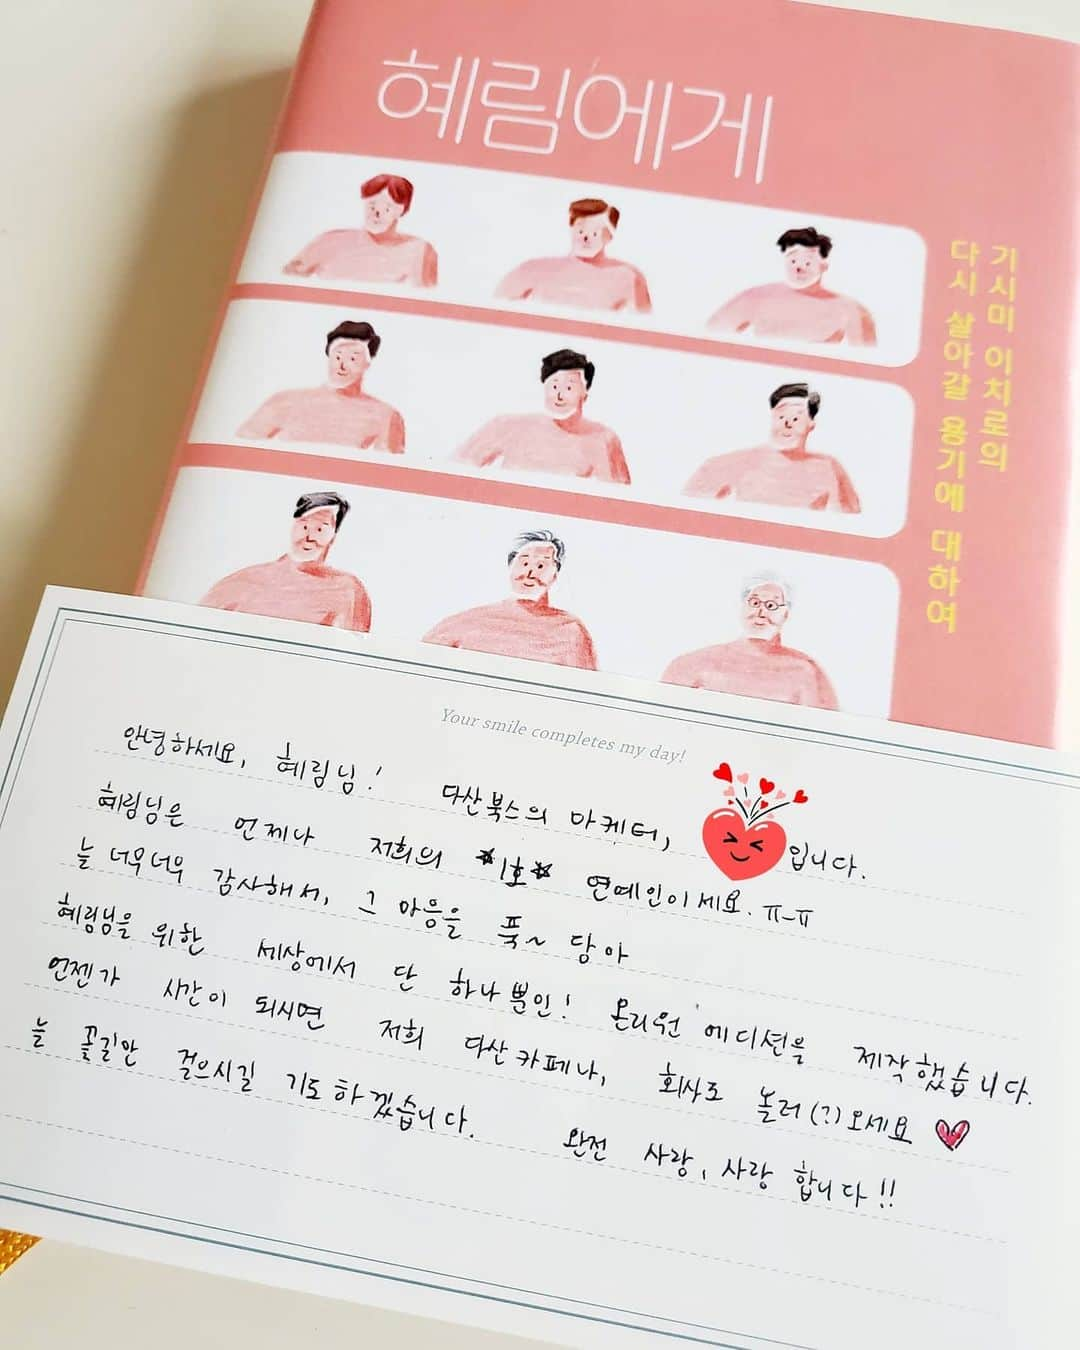 혜림에게
기시미 이치로의
다시 살아갈 용기에 대하여
Your smile completes my day!
안녕하세요, 혜림님! 다산북스의 마케터, 입니다.
혜림님은 언제나 저희의 *1호* 연예인이세요. ㅠ_ㅠ
늘 너무너무 감사해서, 그 마음을 푹~ 담아
혜림님을 위한 세상에서 단 하나뿐인! 온리원 에디션을 제작했습니다.
언젠가 시간이 되시면 저희 다산카페나, 회사도 놀러(?)오세요
늘 꽃길만 걸으시길 기도하겠습니다. 완전 사랑, 사랑 합니다!!